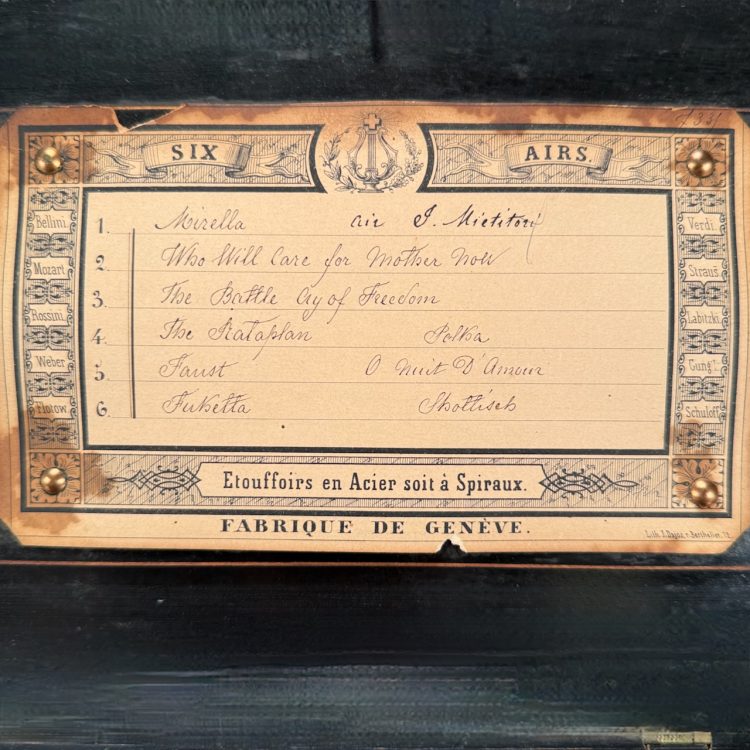 SIX AIRS.
1. Mirella air I. Mietitori
2. Who Will Care for Mother Now
3. The Battle Cry of Freedom
4. The Rataplan Polka
5. Faust O nuit D'Amour
6. Shottisch
Bellini.
Mozart
Rossini.
Weber
Flotow
Verdi.
Straus.
Labitzki.
Gung'l.
Schuloff
Etouffoirs en Acier soit à Spiraux.
FABRIQUE DE GENÈVE.
Lith.